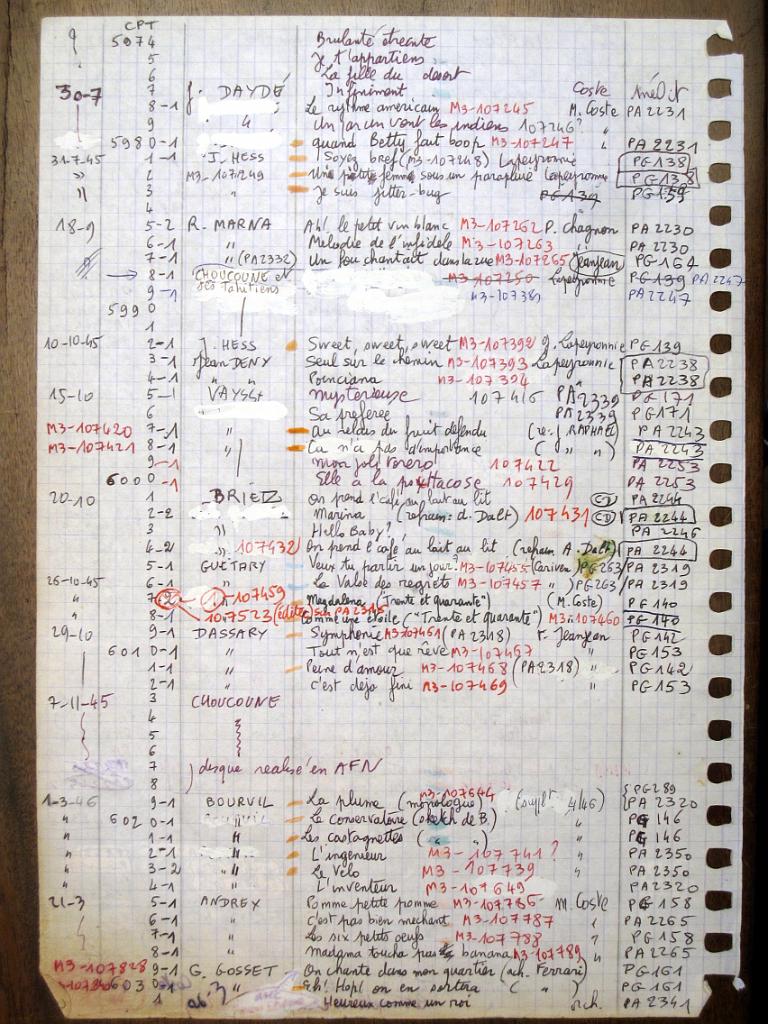 CPT
5974 Brulante etreinte
5 Je t'appartiens
6 La fille du desert
30-7 7 J. DAYDÉ Infiniment Coste inédit
8-1 Le rythme americain M3-107245 M. Coste PA 2231
9 " 107246? "
5980-1 quand Betty fait boop M3-107247 " PA 2231
31-7-45 1-1 J. HESS Soyez bref (M3-107248) Lapeyronnie PG 138
" 2 M3-107249 Une petite femme sous un parapluie Lapeyronnie PG 138
" 3 " Je suis jitter-bug PG 139 PG 159
4
18-9 5-2 R. MARNA Ah! le petit vin blanc M3-107262 P. Chagnon PA 2230
6-1 " Melodie de l'infidele M3-107263 " PA 2230
7-1 " (PA2332) Un fou chantait dans la rue M3-107265 Jeanjean PG 164
→ 8-1 CHOUCOUNE et M3-107250 Lapeyronnie PG 139 PA 2247
9-1 ses Tahitiens M3-107389 PA 2247
5990
1
10-10-45 2-1 J. HESS Sweet, sweet, sweet M3-107392 J. Lapeyronnie PG 139
3-1 Jean DENY Seul sur le chemin M3-107393 Lapeyronnie PA 2238
4-1 " " Poinciana M3-107394 " PA 2238
15-10 5-1 VAYSSE Mysterieuse 107416 PA 2339 PG 171
6 Sa preferee PA 2339 PG 171
M3-107420 7-1 " Au relais du fruit defendu (re: J. RAPHAEL) PA 2243
M3-107421 8-1 Ca n'a pas d'importance ( " " ) PA 2243
9-1 mon joli torero! 107422 PA 2253
6000-1 Elle a la potacose 107429 PA 2253
20-10 1 BRIEZ On prend l'cafe au lait au lit CD PA 2244
2-2 Marina (refrain: d. Dalt) 107431 CD PA 2244
3 " Hello Baby! PA 2246
4-2 " 107432 On prend l'cafe au lait au lit (refrain A. Dalt) PA 2244
5-1 GUÉTARY Veux tu partir un jour? M3-107455 (Cariven) PG 263 PA 2319
26-10-45 6-1 " La Valse des regrets M3-107457 " ) PG 263 PA 2319
" 7 2-1 107459 Magdalena ("Trente et quarante") (M. Coste) PG 140
" 8-1 107523 (édité) sur PA 2315 Comme une étoile ("Trente et quarante") M3-107460 PG 140
29-10 9-1 DASSARY Symphonie M3-107461 (PA 2318) F. Jeanjean PG 142
6010-1 " Tout n'est que rêve M3-107467 " PG 153
1-1 " Peine d'amour M3-107468 (PA 2318) " PG 142
2-1 " c'est dejo fini M3-107469 " PG 153
7-11-45 3 CHOUCOUNE
4
5
6
7 ) disque realisé en AFN
8
1-3-46 9-1 BOURVIL La plume (monologue) M3-107644 4/46) PG 289 PA 2320
" 6020-1 Le conservatoire (sketch de B.) " PG 146
" 1-1 " Les castagnettes ( " " ) " PG 146
" 2-1 " L'ingenieur M3-107741? " PA 2350
" 3-2 " Le Velo M3-107739 " PA 2350
" 4-1 L'inventeur M3-107649 PA 2320
21-3 5-1 ANDREX Pomme petite pomme M3-107786 M. Coste PG 158
6-1 " c'est pas bien mechant M3-107787 " PA 2265
7-1 " Les six petits oeufs M3-107788 " PG 158
8-1 " madame toucha pas banana M3-107789 " PA 2265
M3-107828 9-1 G. GOSSET On chante dans mon quartier (och. Ferrari) PG 161
6030-1 " Eh! Hop! on en sortira ( " ) PG 161
1 Heureux comme un roi orch. PA 2341